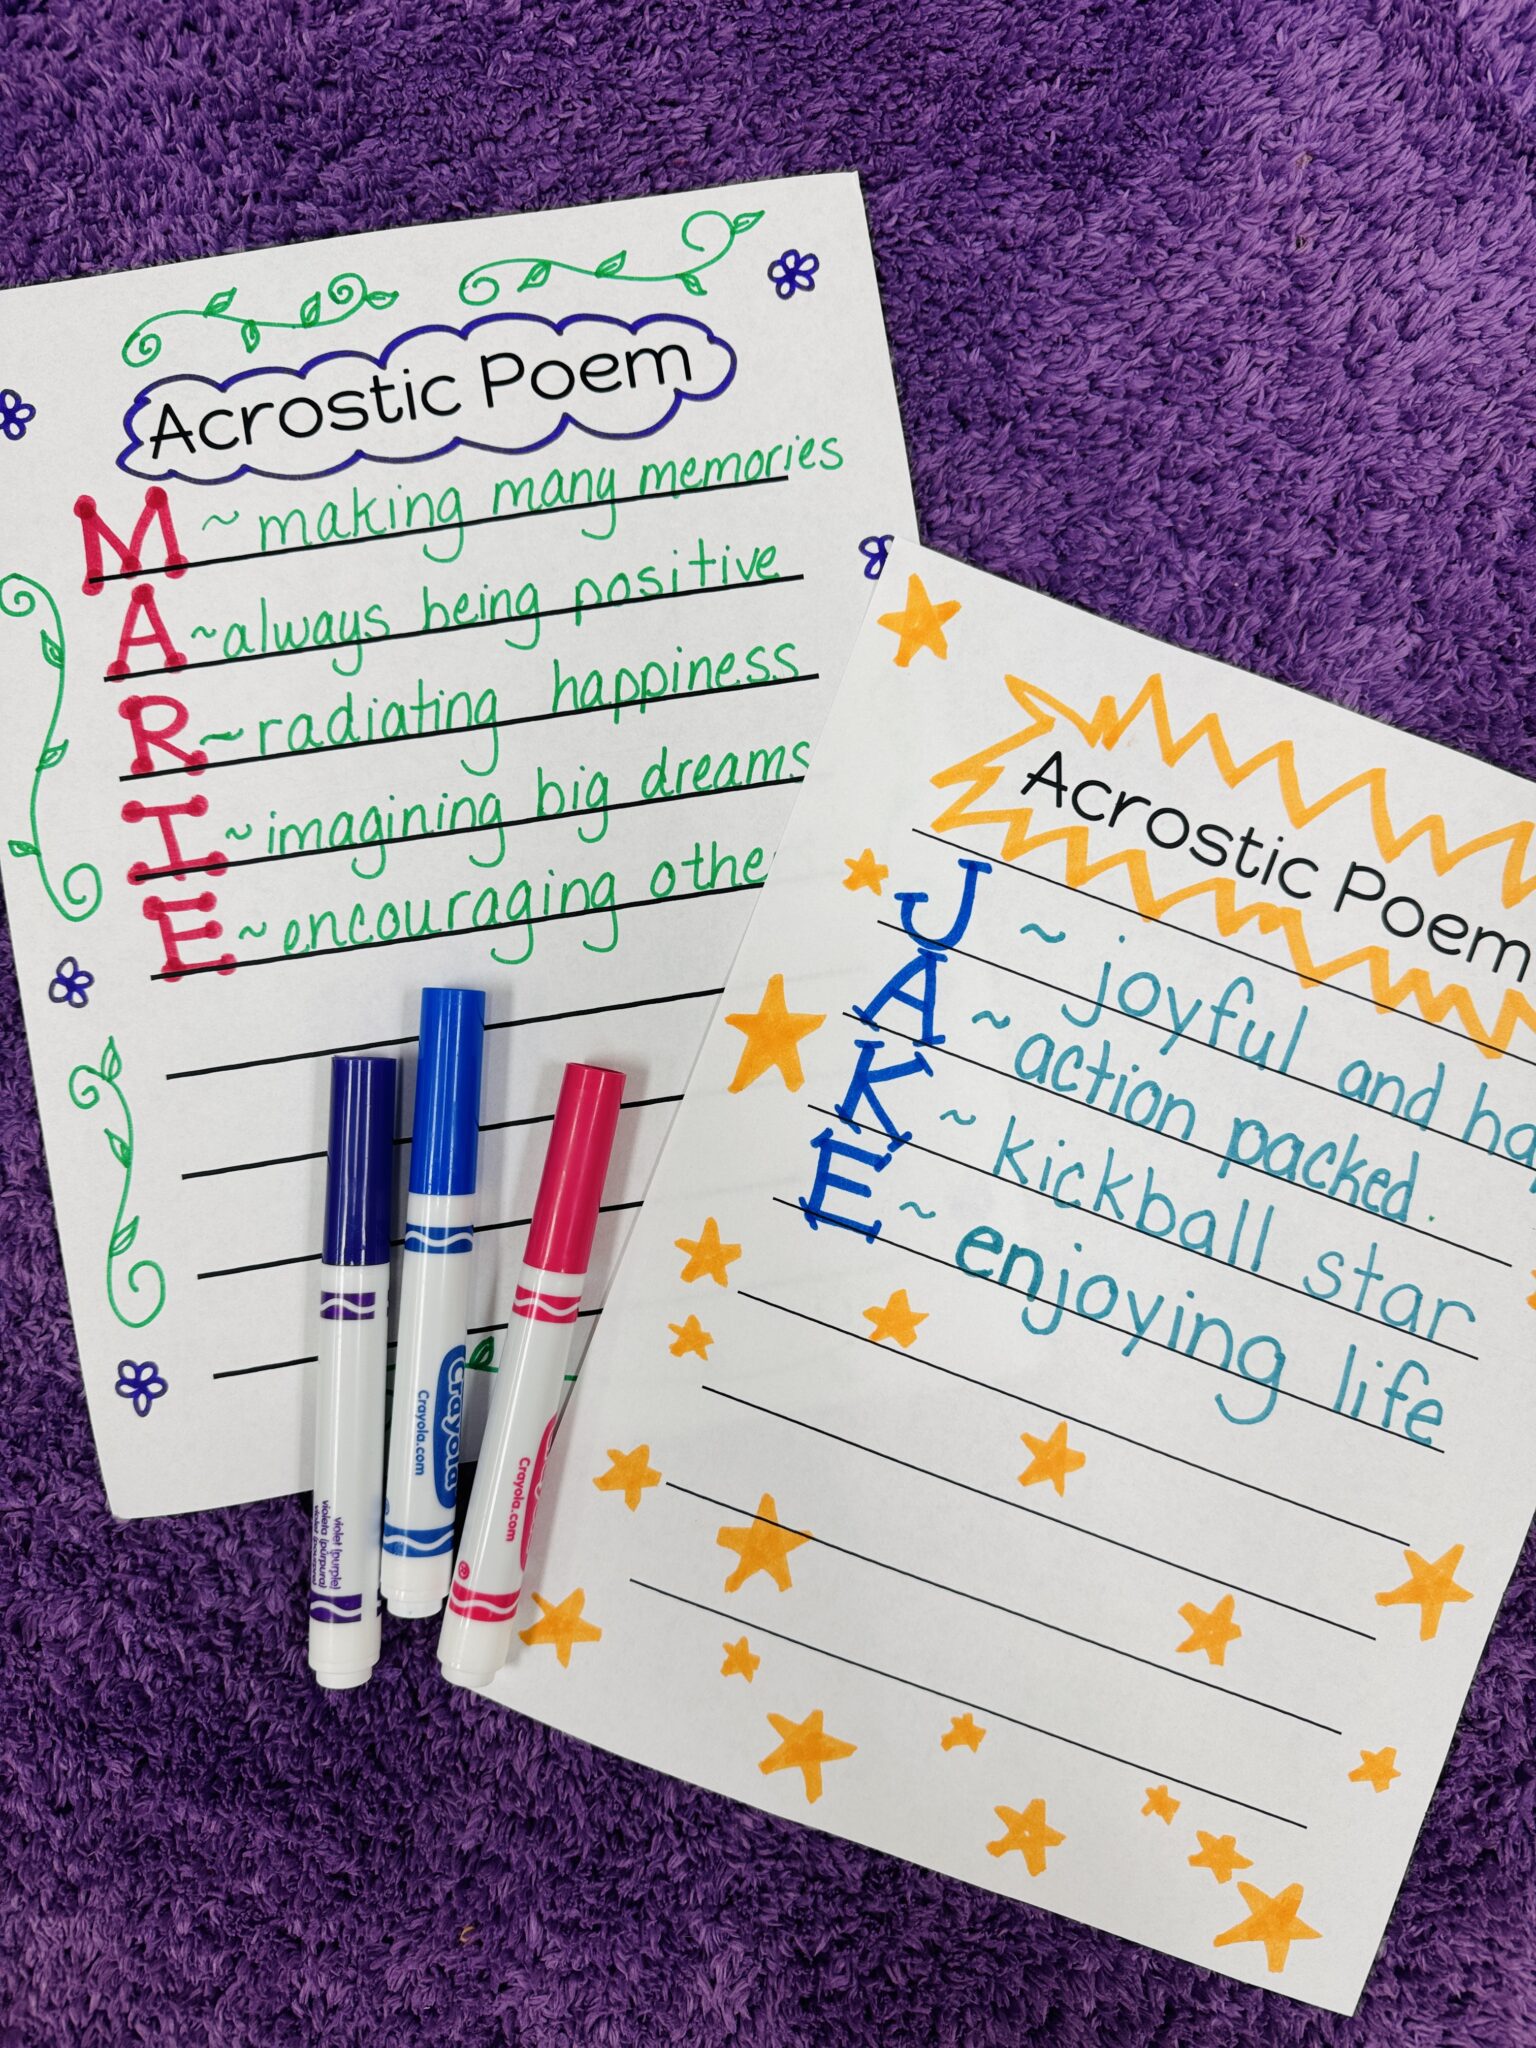 Acrostic Poem
M ~ making many memories
A ~ always being positive
R ~ radiating happiness
I ~ imagining big dreams
E ~ encouraging othe
Acrostic Poem
J ~ joyful and hap
A ~ action packed.
K ~ kickball star
E ~ enjoying life
violet (purple)
violeta (púrpura)
violet (pourpre)
Crayola
Crayola.com
Crayola.com